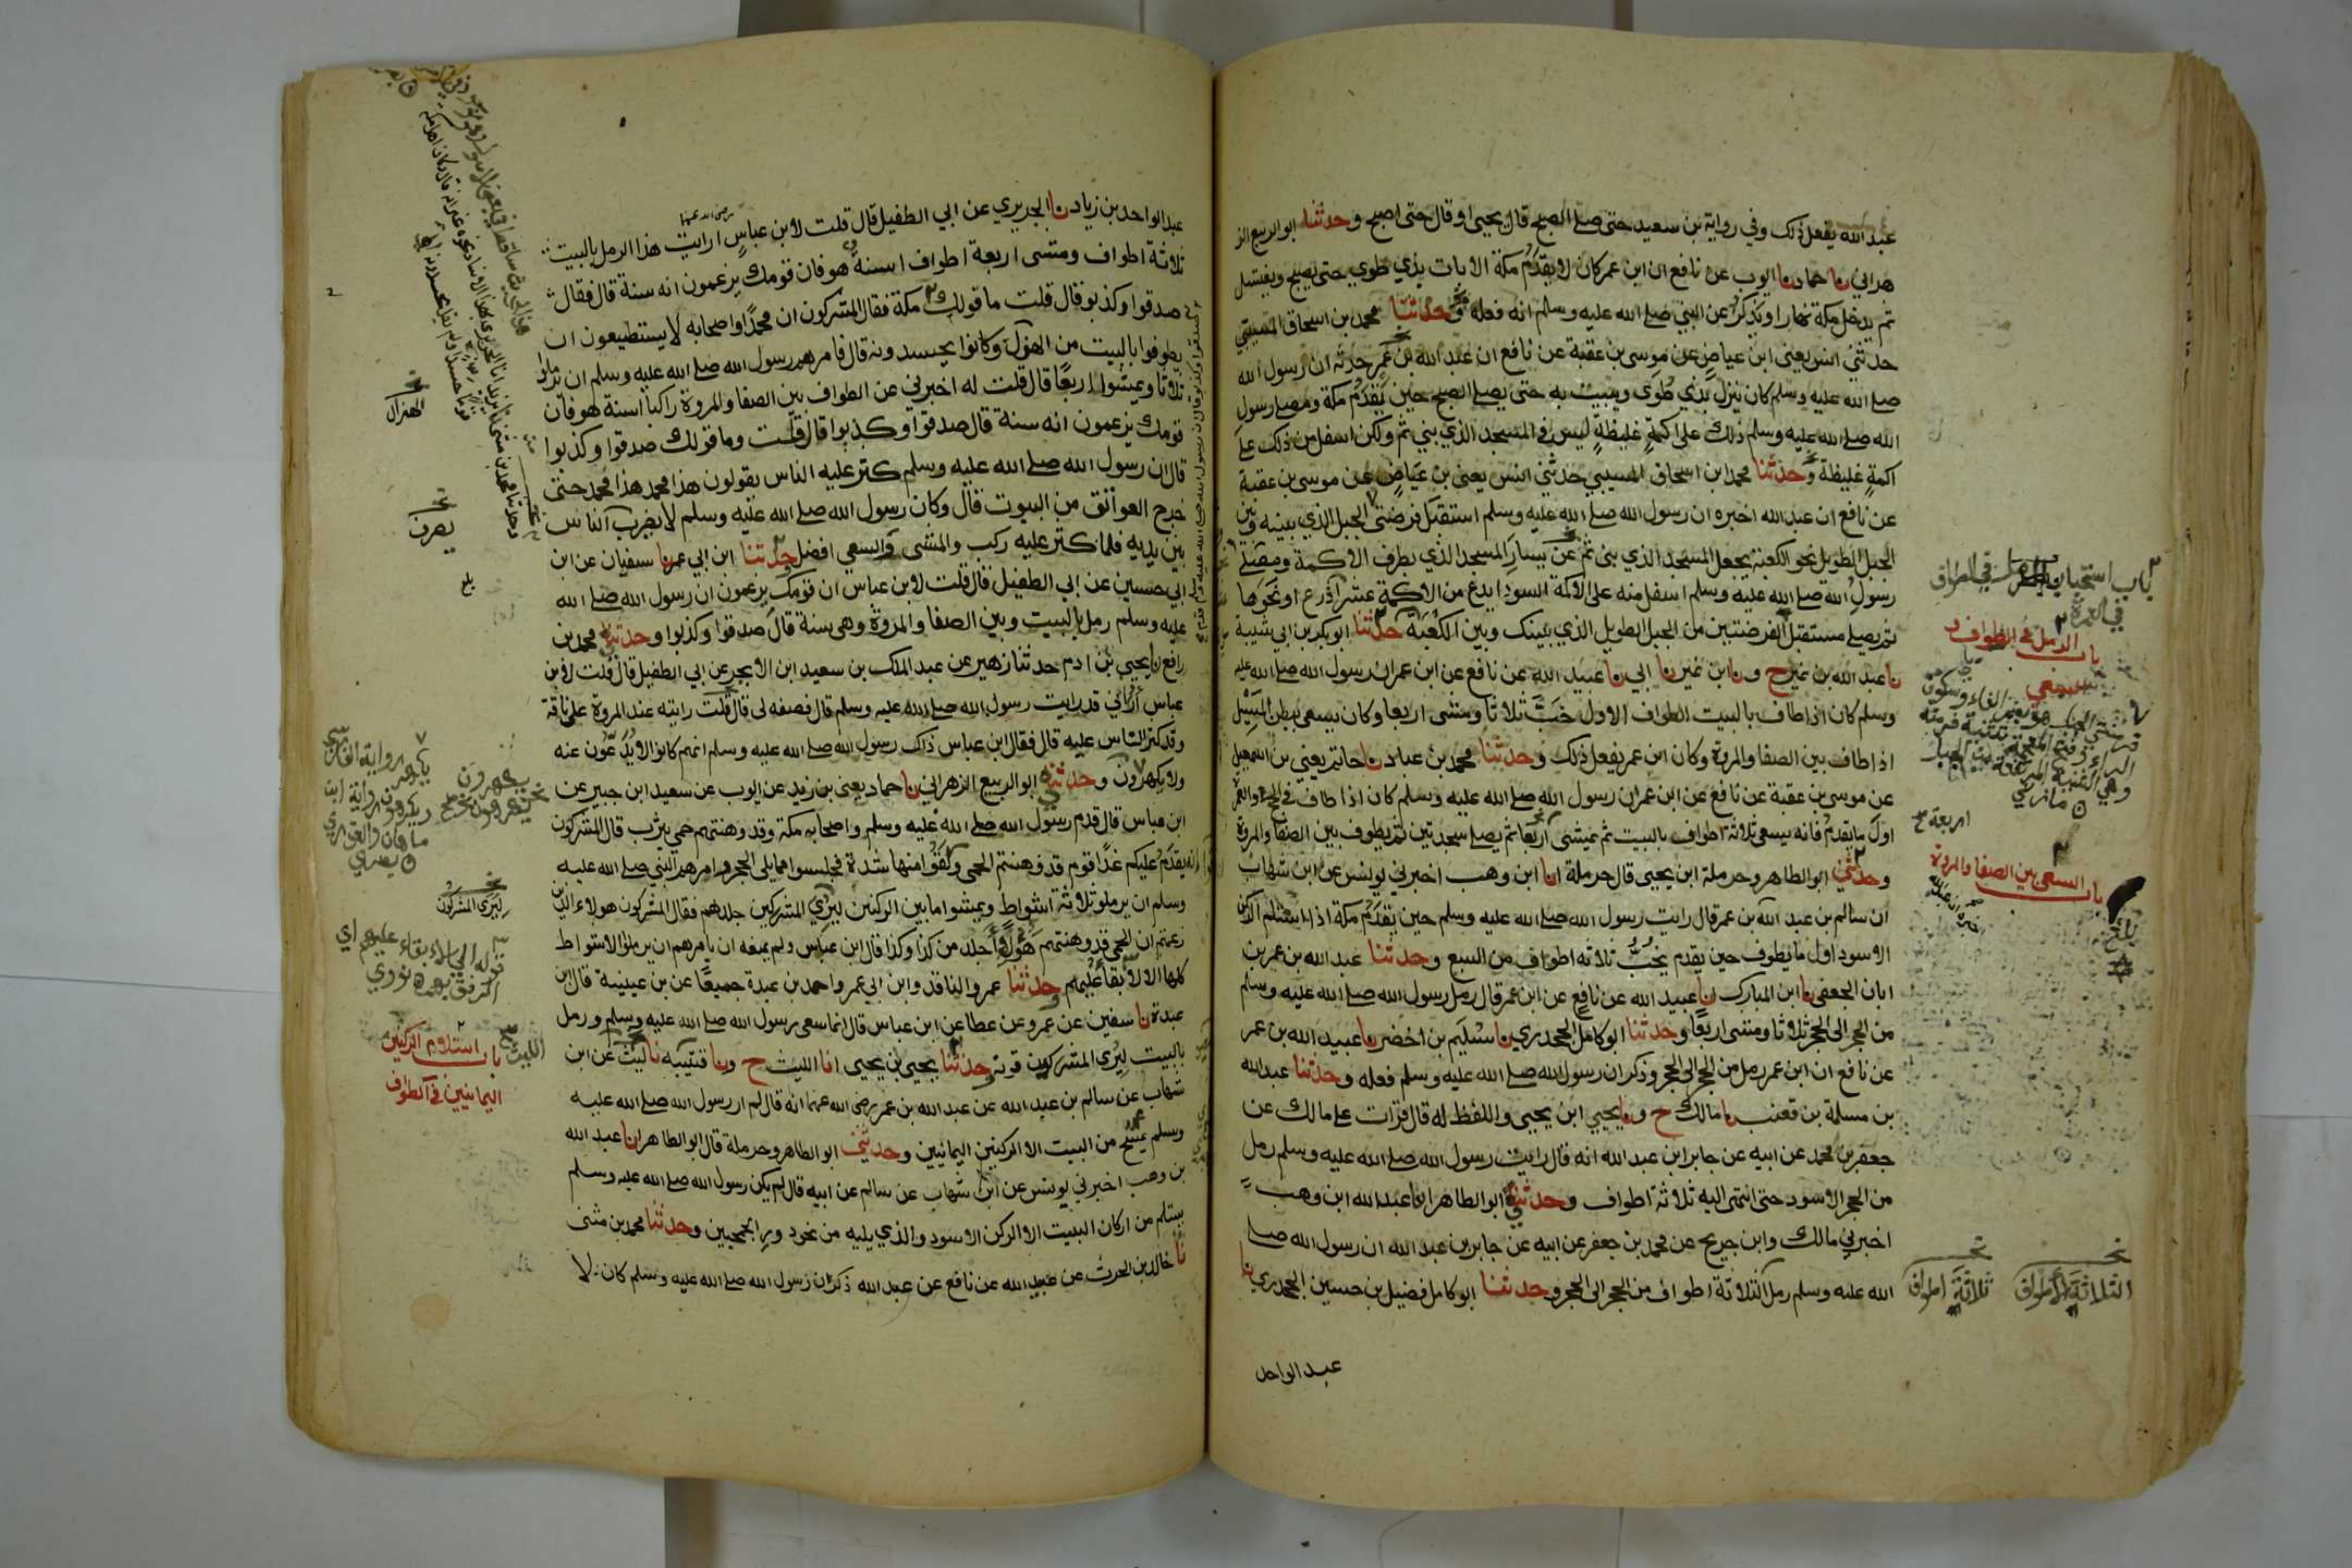 عبد الله يفعل ذلك وفي رواية بن سعيد حتى صلى الصبح قال يحيى او قال حتى اصبح وحدثنا ابو الربيع الز
هراني نا حماد نا ايوب عن نافع ان ابن عمر كان لا يقدم مكة الا بات بذي طوي حتى يصبح ويغتسل
ثم يدخل مكة نهارا ويذكر عن النبي صلى الله عليه وسلم انه فعله وحدثنا محمد بن اسحاق المسيبي
حدثني انس يعني ابن عياض عن موسى بن عقبة عن نافع ان عبد الله بن عمر حدثه ان رسول الله
صلى الله عليه وسلم كان ينزل بذي طوى ويبيت به حتى يصلي الصبح حين يقدم مكة ومصلى رسول
الله صلى الله عليه وسلم ذلك على اكمة غليظة ليس في المسجد الذي بني ثم ولكن اسفل من ذلك على
اكمة غليظة وحدثنا محمد ابن اسحاق المسيبي حدثني انس يعني بن عياض عن موسى بن عقبة
عن نافع ان عبد الله اخبره ان رسول الله صلى الله عليه وسلم استقبل فرضتي الجبل الذي بينه وبين
الجبل الطويل نحو الكعبة يجعل المسجد الذي بني ثم عن يسار المسجد الذي بطرف الاكمة ومصلى
رسول الله صلى الله عليه وسلم اسفل منه على الاكمة السودا يدع من الاكمة عشر اذرع او نحوها
ثم يصلي مستقبل الفرضتين من الجبل الطويل الذي بينك وبين الكعبة حدثنا ابو بكر بن ابي شيبة
نا عبد الله بن نمير ح ونا ابن نمير نا ابي نا عبيد الله عن نافع عن ابن عمر ان رسول الله صلى الله عليه
وسلم كان اذا طاف بالبيت الطواف الاول خب ثلاثا ومشى اربعا وكان يسعى ببطن المسيل
اذا طاف بين الصفا والمروة وكان ابن عمر يفعل ذلك وحدثنا محمد بن عباد نا حاتم يعني بن اسمعيل
عن موسى بن عقبة عن نافع عن ابن عمر ان رسول الله صلى الله عليه وسلم كان اذا طاف في الحج والعمرة
اول ما يقدم فانه يسعى ثلاثة اطواف بالبيت ثم يمشي اربعا ثم يصلي سجدتين ثم يطوف بين الصفا والمروة
وحدثني ابو الطاهر وحرملة ابن يحيى قال حرملة انا ابن وهب اخبرني يونس عن ابن شهاب
ان سالم بن عبد الله بن عمر قال رايت رسول الله صلى الله عليه وسلم حين يقدم مكة اذا استلم الركن
الاسود اول ما يطوف حين يقدم يخب ثلاثه اطواف من السبع وحدثنا عبد الله بن عمر بن
ابان الجعفي نا ابن المبارك انا عبيد الله عن نافع عن ابن عمر قال رمل رسول الله صلى الله عليه وسلم
من الحجر الى الحجر ثلاثا ومشى اربعا وحدثنا ابو كامل الجحدري نا سليم بن اخضر نا عبيد الله بن عمر
عن نافع ان ابن عمر رمل من الحجر الى الحجر وذكر ان رسول الله صلى الله عليه وسلم فعله وحدثنا عبد الله
بن مسلمة بن قعنب نا مالك ح ونا يحيى ابن يحيى واللفظ له قال قرات على مالك عن
جعفر بن محمد عن ابيه عن جابر ابن عبد الله انه قال رايت رسول الله صلى الله عليه وسلم رمل
من الحجر الاسود حتى انتهى اليه ثلاثة اطواف وحدثني ابو الطاهر انا عبد الله ابن وهب
اخبرني مالك وابن جريج عن محمد بن جعفر عن ابيه عن جابر بن عبد الله ان رسول الله صلى
الله عليه وسلم رمل الثلاثة اطواف من الحجر الى الحجر وحدثنا ابو كامل فضيل بن حسين الجحدري نا
عبد الواحد
باب استحباب الرمل في الطواف
في العمرة
باب الرمل في الطواف و
السعي
اربعة
باب السعي بين الصفا والمروة
بلغ
الثلاثة الاطواف
ثلاثة اطواف
عبد الواحد بن زياد نا الجريري عن ابي الطفيل قال قلت لابن عباس رضي الله عنهما ارايت هذا الرمل بالبيت
ثلاثة اطواف ومشى اربعة اطواف اسنة هو فان قومك يزعمون انه سنة قال فقال
صدقوا وكذبو قال قلت ما قولك مكة فقال المشركون ان محمدا واصحابه لا يستطيعون ان
يطوفوا بالبيت من الهزل وكانوا يحسدونه قال فامرهم رسول الله صلى الله عليه وسلم ان يرملوا
ثلاثا ويمشوا اربعا قال قلت له اخبرني عن الطواف بين الصفا والمروة راكبا اسنة هو فان
قومك يزعمون انه سنة قال صدقوا وكذبوا قال قلت وما قولك صدقوا وكذبوا
قال ان رسول الله صلى الله عليه وسلم كثر عليه الناس يقولون هذا محمد هذا محمد حتى
خرج العواتق من البيوت قال وكان رسول الله صلى الله عليه وسلم لا يضرب الناس
بين يديه فلما كثر عليه ركب والمشى والسعي افضل حدثنا ابن ابي عمر نا سفيان عن ابن
ابي حسين عن ابي الطفيل قال قلت لابن عباس ان قومك يزعمون ان رسول الله صلى الله
عليه وسلم رمل بالبيت وبين الصفا والمروة وهي سنة قال صدقوا وكذبوا وحدثني محمد بن
رافع نا يحيى بن ادم حدثنا زهير عن عبد الملك بن سعيد ابن الابجر عن ابي الطفيل قال قلت لابن
عباس اراني قد رايت رسول الله صلى الله عليه وسلم قال فصفه لى قال قلت رايته عند المروة على ناقة
وقد كثر الناس عليه قال فقال ابن عباس ذاك رسول الله صلى الله عليه وسلم انهم كانوا لا يدعون عنه
ولا يكهرون وحدثني ابو الربيع الزهراني نا حماد يعني بن زيد عن ايوب عن سعيد ابن جبير عن
ابن عباس قال قدم رسول الله صلى الله عليه وسلم واصحابه مكة وقد وهنتهم حمى يثرب قال المشركون
انه يقدم عليكم غدا قوم قد وهنتم الحمى ولقوا منها شدة فجلسوا مما يلي الحجر وامرهم النبي صلى الله عليه
وسلم ان يرملو ثلاثة اشواط ويمشوا ما بين الركنين ليرى المشركين جلدهم فقال المشركون هولاء الذين
زعمتم ان الحمى قد وهنتهم هولاء اجلد من كذا وكذا قال ابن عباس ولم يمنعه ان يامرهم ان يرملوا الاشواط
كلها الا الابقاء عليهم وحدثنا عمرو الناقد وابن ابي عمر واحمد بن عبدة جميعا عن بن عيينة قال ابن
عبدة نا سفين عن عمرو عن عطا عن ابن عباس قال انما سعى رسول الله صلى الله عليه وسلم ورمل
بالبيت ليرى المشركون قوته وحدثنا يحيى بن يحيى انا الليث ح ونا قتيبه نا ليث عن ابن
شهاب عن سالم بن عبد الله عن عبد الله بن عمر رضي الله عنهما انه قال لم ار رسول الله صلى الله عليه
وسلم يمسح من البيت الا الركنين اليمانيين وحدثني ابو الطاهر وحرملة قال ابو الطاهر انا عبد الله
بن وهب اخبرني يونس عن ابن شهاب عن سالم عن ابيه قال لم يكن رسول الله صلى الله عليه وسلم
يستلم من اركان البيت الا الركن الاسود والذي يليه من نحو دور الجمحيين وحدثنا محمد بن مثنى
نا خالد بن الحرث عن عبيد الله عن نافع عن عبد الله ذكر ان رسول الله صلى الله عليه وسلم كان لا
الهزال
ليرى المشركون
قوله الا الابقاء عليهم اي
الرفق بهم نووي
الليث
باب استلام الركنين
اليمانيين في الطواف